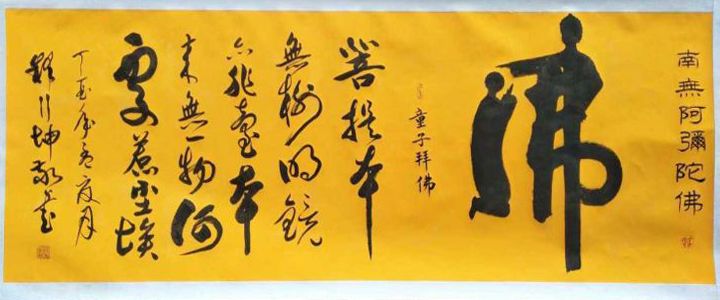 南無阿彌陀佛
佛
童子拜佛
菩提本
無樹明鏡
亦非臺本
來無一物何
處惹塵埃
丁酉月
坤敬書